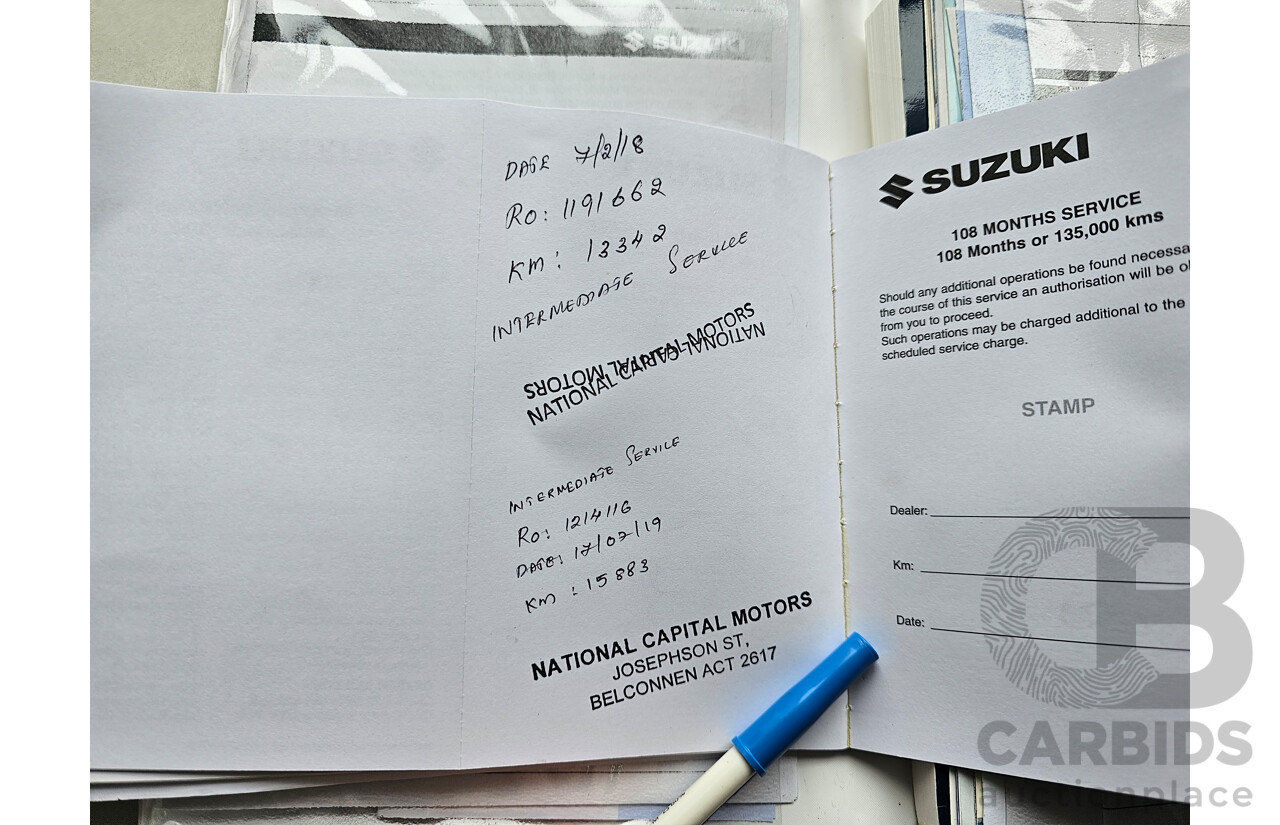 SUZUKI
DATE 7/2/18
RO: 1191662
KM: 13342
INTERMEDIATE SERVICE
NATIONAL CAPITAL MOTORS
NATIONAL CAPITAL MOTORS
INTERMEDIATE SERVICE
RO: 1214116
DATE: 17/02/19
KM: 15883
NATIONAL CAPITAL MOTORS
JOSEPHSON ST,
BELCONNEN ACT 2617
SUZUKI
108 MONTHS SERVICE
108 Months or 135,000 kms
Should any additional operations be found necessa
the course of this service an authorisation will be o
from you to proceed.
Such operations may be charged additional to the
scheduled service charge.
STAMP
Dealer:
Km:
Date:
CB
CARBIDS
auctionplace